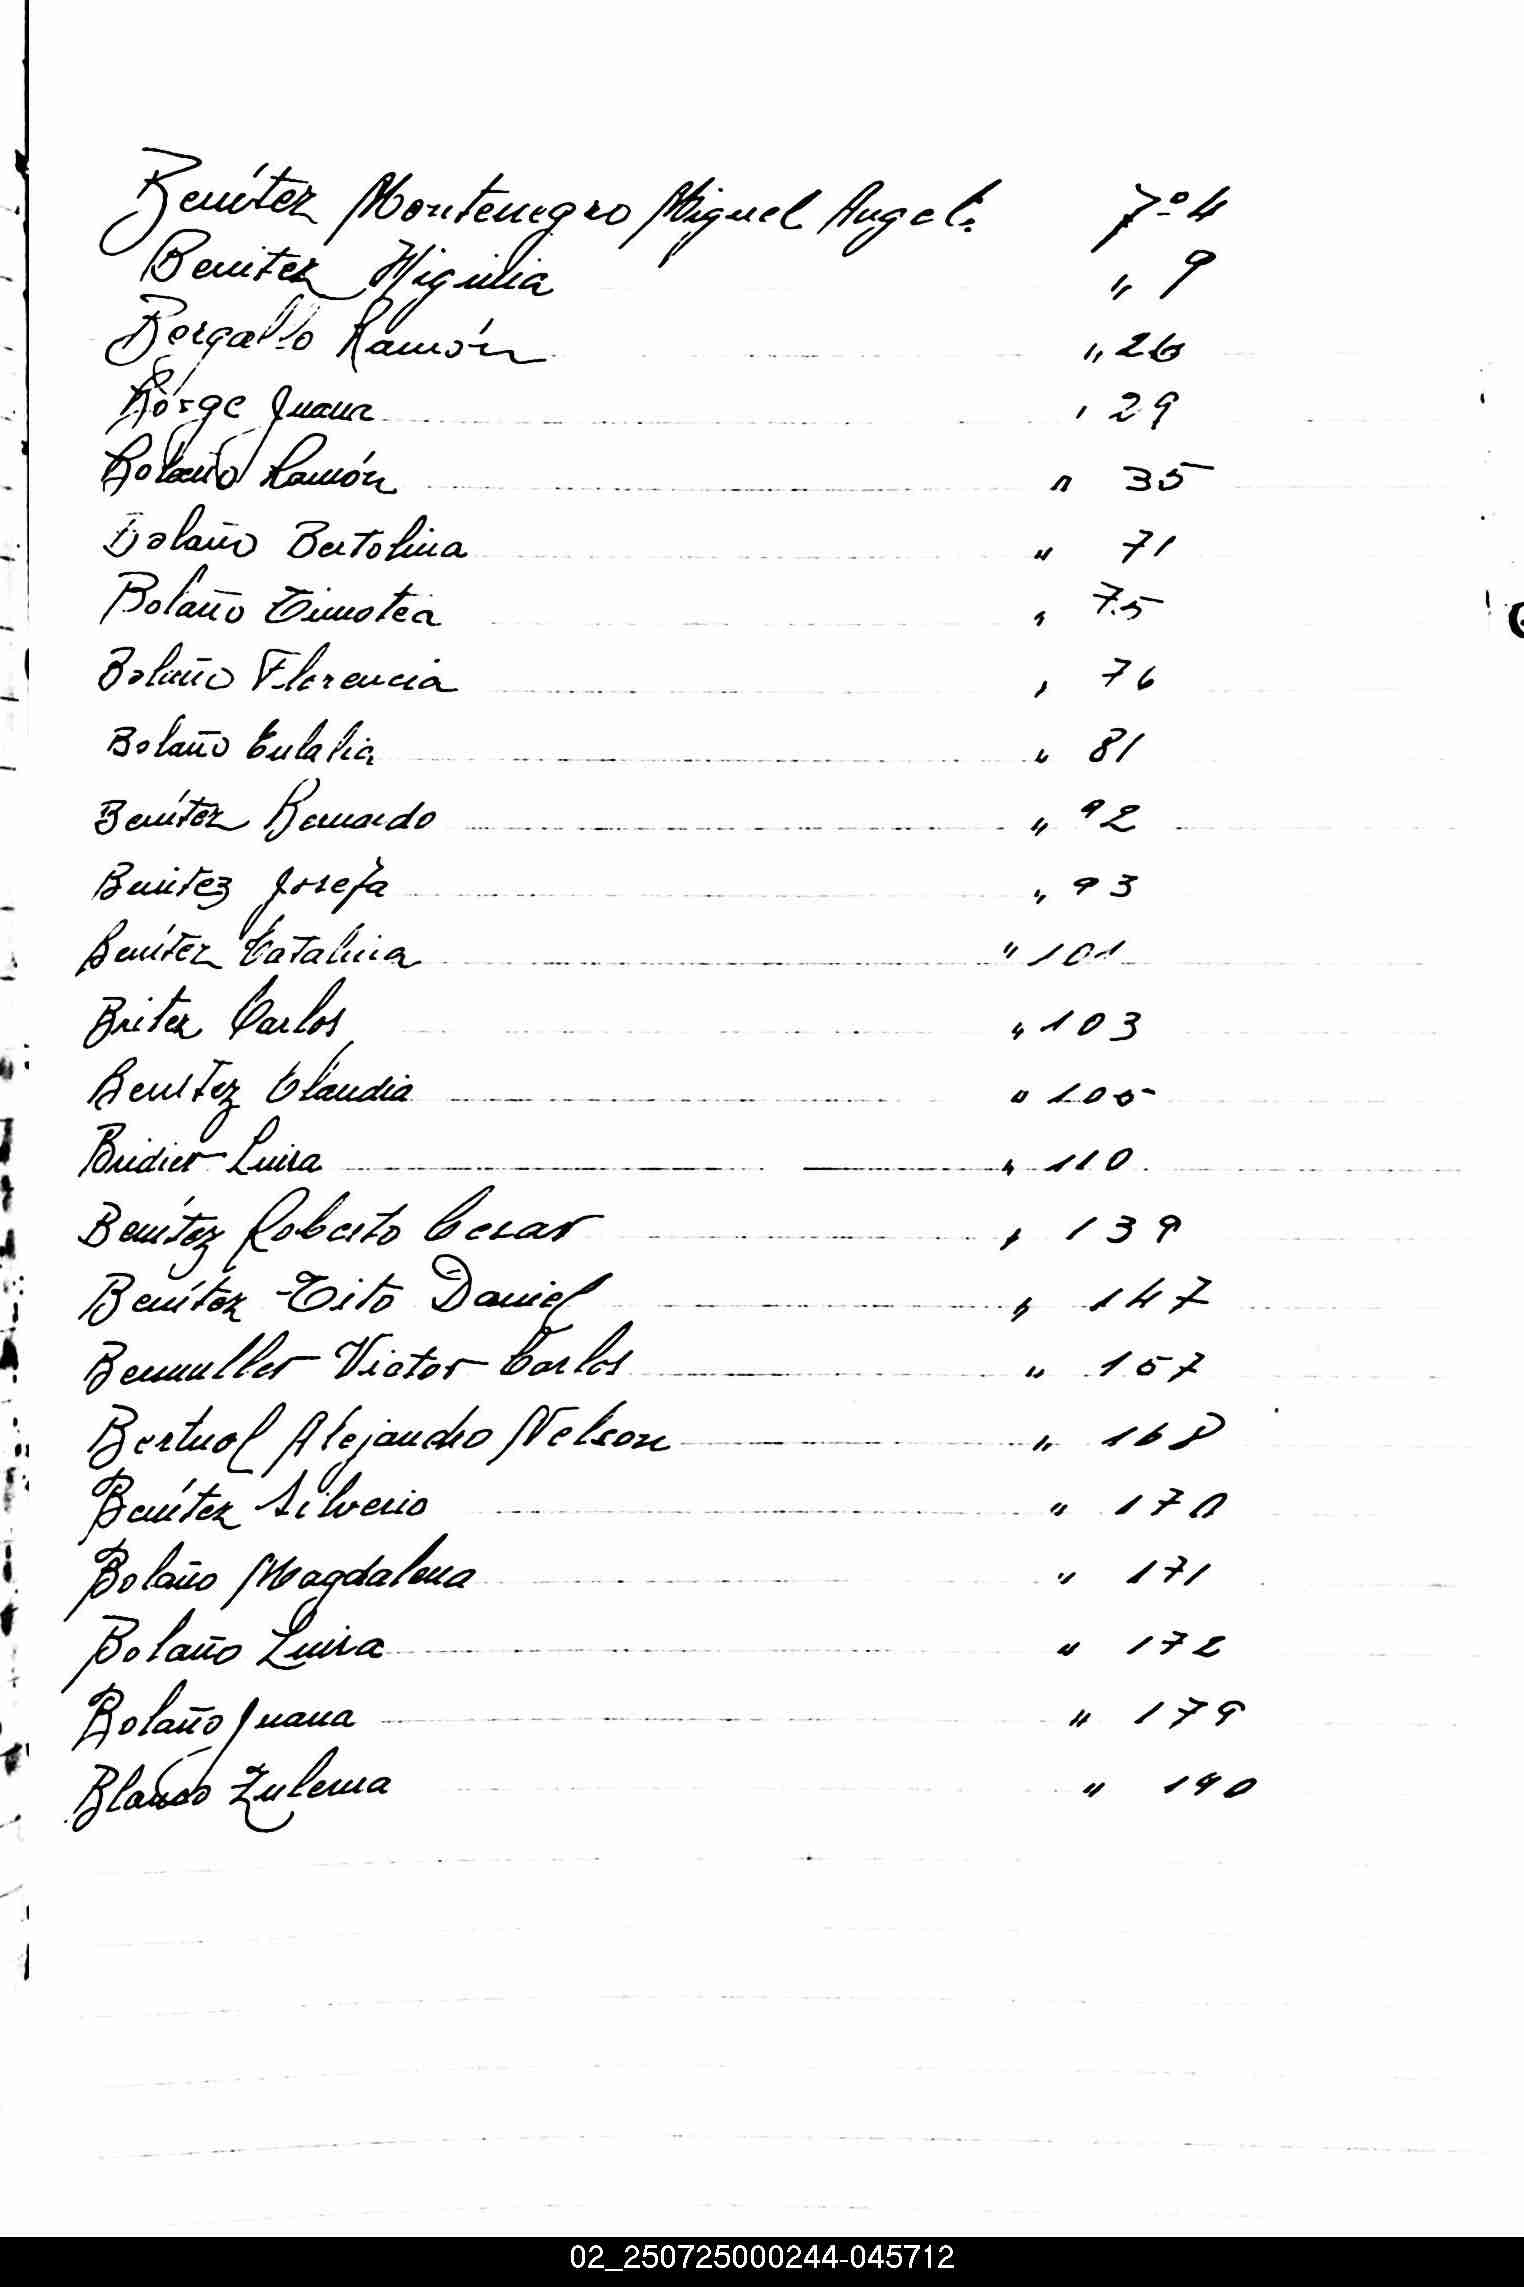 Benítez Montenegro Miguel Angel. Fº 4
Benitez Higinia " 9
Borgallo Ramón " 26
Borge Juana " 29
Bolaño Ramón " 35
Bolaño Bertolina " 71
Bolaño Timotea " 75
Bolaño Florencia " 76
Bolaño Eulalia " 81
Benítez Bernardo " 92
Benítez Josefa " 93
Benítez Catalina " 101
Britez Carlos " 103
Benítez Claudia " 105
Bridier Luisa " 110
Benítez Roberto Cesar " 139
Benítez Tito Daniel " 147
Bermuller Victor Carlos " 157
Bertuol Alejandro Nelson " 168
Benítez Silverio " 170
Bolaño Magdalena " 171
Bolaño Luisa " 172
Bolaño Juana " 179
Blanco Zulema " 190
02_250725000244-045712